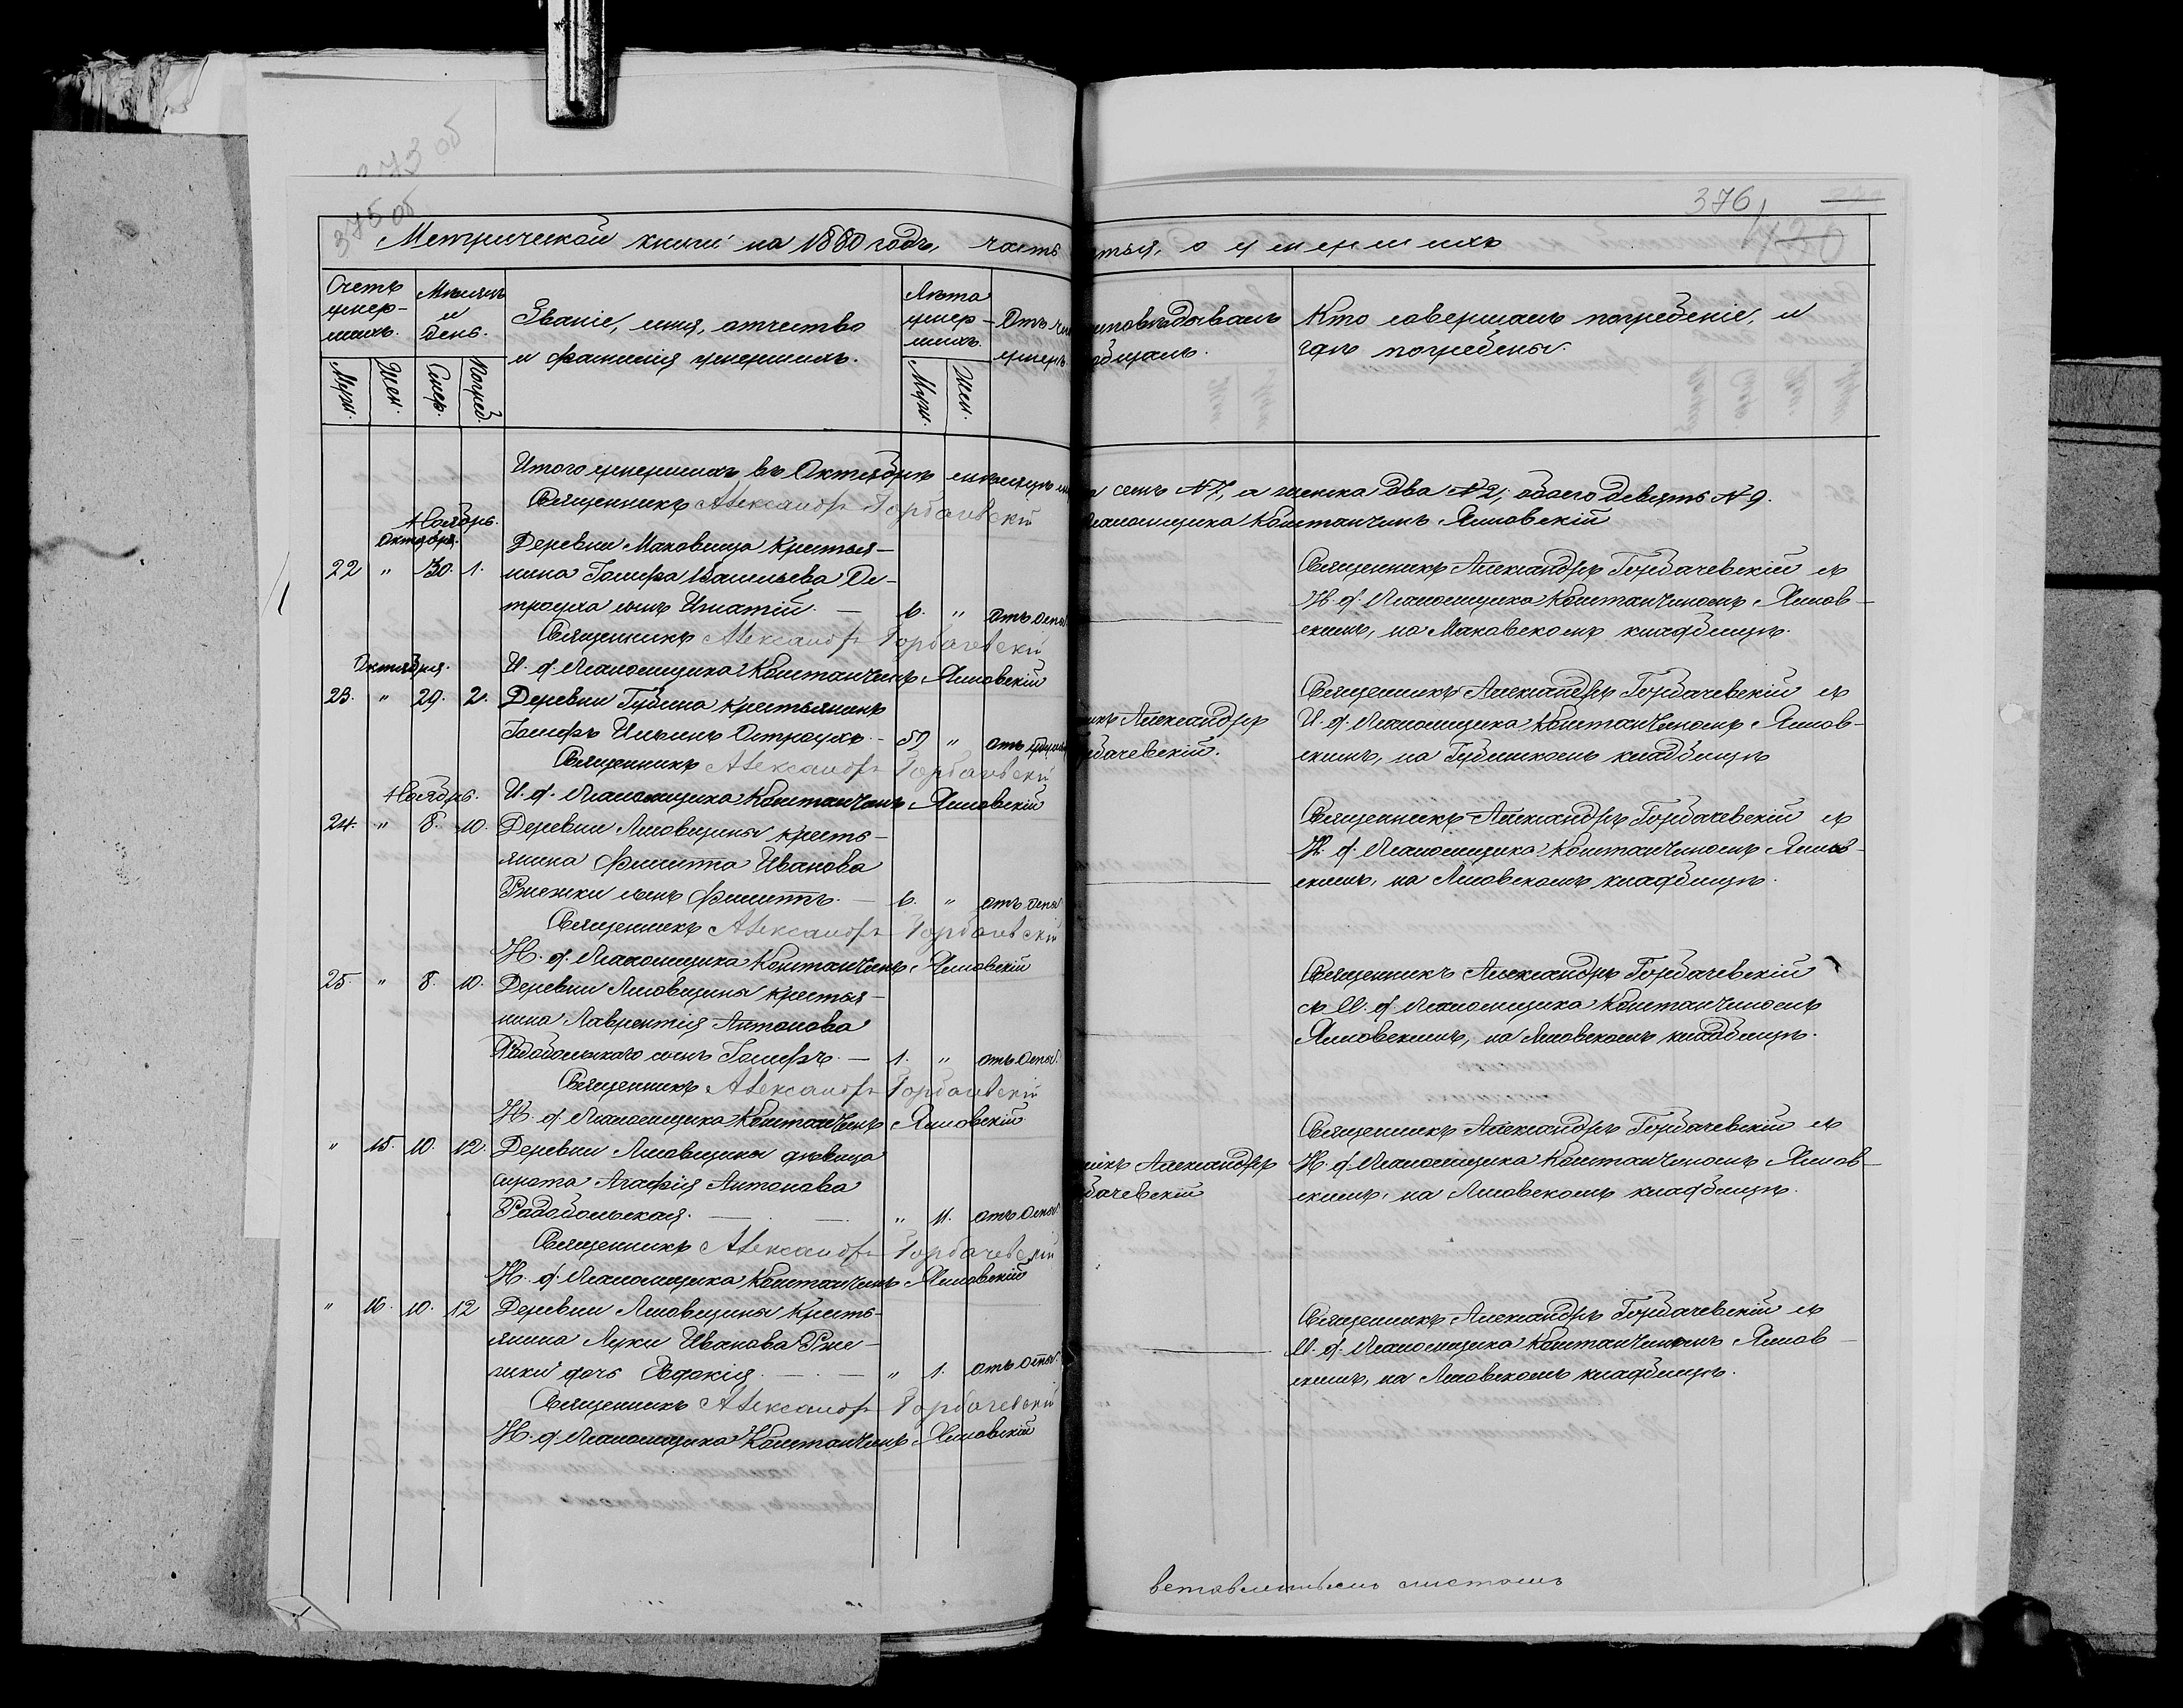 373 об
375 об
376
420
Метрической книги на 1880 годъ, часть третья, о умершихъ
Счетъ умер-шихъ.
Мѣсяцъ и день.
Званіе, имя, отчество
и фамилія умершихъ.
Лѣта умер-шихъ.
Отъ чего
умеръ
исповѣдывалъ
общалъ.
Кто совершалъ погребеніе, и
гдѣ погребены.
Муж. Жен. Смер. Погреб. Муж. Жен.
Итого умершихъ въ Октябрѣ мѣсяцѣ
семь №7, а женска два №2, обоего девять №9.
Священникъ Александръ Горбачевскій
Псаломщика Константинъ Ямовскій
Ноябрь.
Октября.
Деревни Маковища Крестья-
22 " 30. 1. нина Іосифа Васильева Ос-
троуха сынъ Игнатій. — 6. " отъ оспы
Священникъ Александръ Горбачевскій съ
И. ф. Псаломщика Константиномъ Ямов-
скимъ, на Маковскомъ кладбищѣ.
Священникъ Александръ Горбачевскій
Октября.
И. ф. Псаломщика Константинъ Ямовскій
23. " 29. 2. Деревни Губина крестьянинъ
Іосифъ Ильинъ Остроухъ. — 50 " отъ
Александръ
Горбачевскій.
Священникъ Александръ Горбачевскій съ
И. ф. Псаломщика Константиномъ Ямов-
скимъ, на Губинскомъ кладбищѣ
Священникъ Александръ Горбачевскій
Ноябрь.
И. ф. Псаломщика Константинъ Ямовскій
24. " 8. 10. Деревни Лисовщины кресть-
янина Филиппа Иванова
Рженки сынъ Филиппъ. — 6. " отъ оспы
Священникъ Александръ Горбачевскій съ
И. ф. Псаломщика Константиномъ Ямов-
скимъ, на Лисовскомъ кладбищѣ.
Священникъ Александръ Горбачевскій
И. ф. Псаломщика Константинъ Ямовскій
25. " 8. 10. Деревни Лисовщины крестья-
нина Лаврентія Антонова
Радобольскаго сынъ Іосифъ. — 1. " отъ оспы.
Священникъ Александръ Горбачевскій
съ И. ф. Псаломщика Константиномъ
Ямовскимъ, на Лисовскомъ кладбищѣ.
Священникъ Александръ Горбачевскій
И. ф. Псаломщика Константинъ Ямовскій
" 15. 10. 12. Деревни Лисовщины дѣвица
сирота Агафія Антонова
Радобольская. — " 11. отъ оспы.
Александръ
Горбачевскій
Священникъ Александръ Горбачевскій съ
И. ф. Псаломщика Константиномъ Ямов-
скимъ, на Лисовскомъ кладбищѣ.
Священникъ Александръ Горбачевскій
И. ф. Псаломщика Константинъ Ямовскій
" 16. 10. 12 Деревни Лисовщины Кресть-
янина Луки Иванова Рже-
нки дочь Евдокія. — " 1. отъ оспы.
Священникъ Александръ Горбачевскій съ
И. ф. Псаломщика Константиномъ Ямов-
скимъ, на Лисовскомъ кладбищѣ.
Священникъ Александръ Горбачевскій
И. ф. Псаломщика Константинъ Ямовскій
листомъ